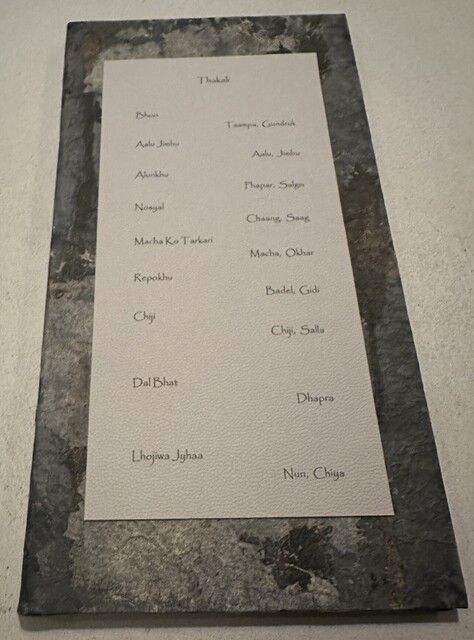 Thakali
Bhun
Tsampa, Gundruk
Aalu Jimbu
Aalu, Jimbu
Alunkhu
Phapar, Salgn
Nosyal
Chaang, Saag
Macha Ko Tarkari
Macha, Okhar
Repokhu
Badel, Gidi
Chiji
Chiji, Salla
Dal Bhat
Dhapra
Lhojiwa Jyhaa
Nun, Chiya